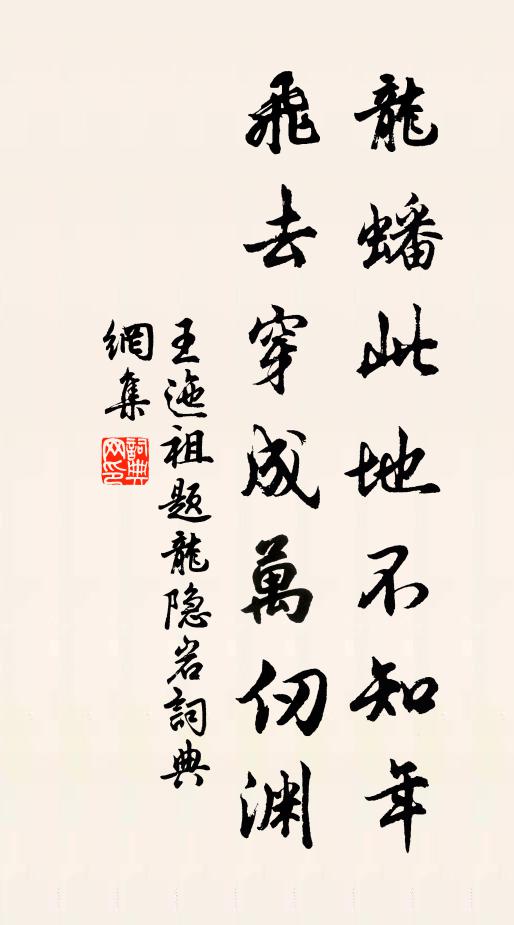 龍蟠此地不知年
飛去穿成萬仞淵
王迤祖題龍隐岩詞典
網集
詞典
网印